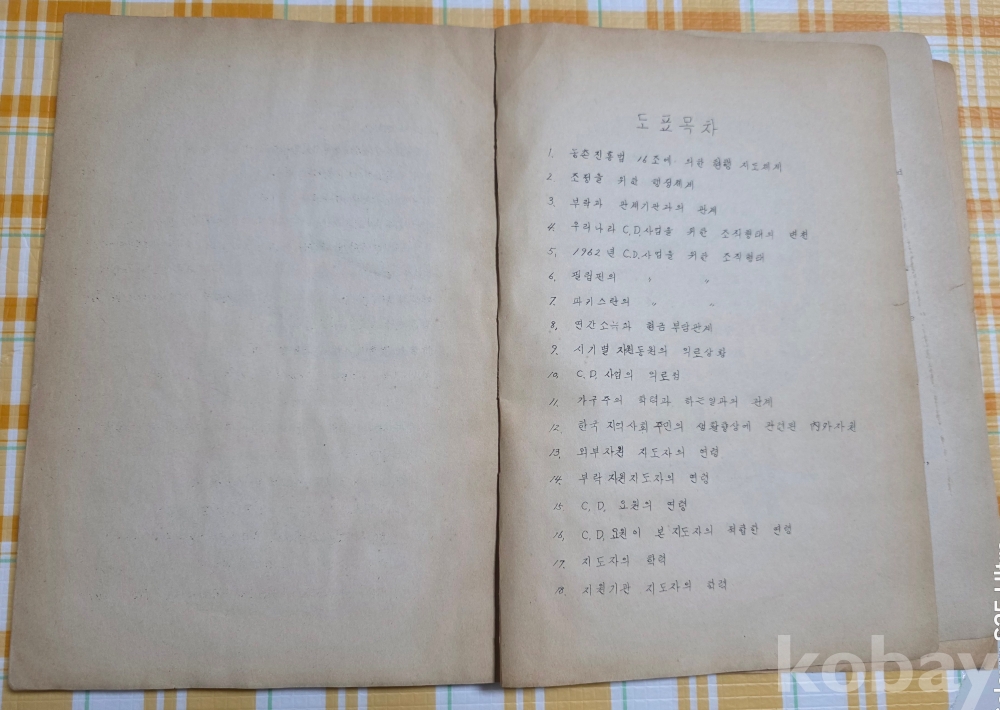 도표목차
1. 농촌진흥법 16조에 의한 현행 지도체계
2. 조정을 위한 행정체계
3. 부락과 관계기관과의 관계
4. 우리나라 C.D.사업을 위한 조직형태의 변천
5. 1962년 C.D.사업을 위한 조직형태
6. 필립핀의 〃 〃
7. 파키스탄의 〃 〃
8. 연간소득과 현금부담관계
9. 시기별 자원동원의 의뢰상황
10. C.D.사업의 의뢰점
11. 가구주의 학력과 하는일과의 관계
12. 한국 지역사회 주민의 생활향상에 관련된 內外자원
13. 외부자원 지도자의 연령
14. 부락 자원지도자의 연령
15. C.D. 요원의 연령
16. C.D. 요원이 본 지도자의 적합한 연령
17. 지도자의 학력
18. 지원기관 지도자의 학력
kobay